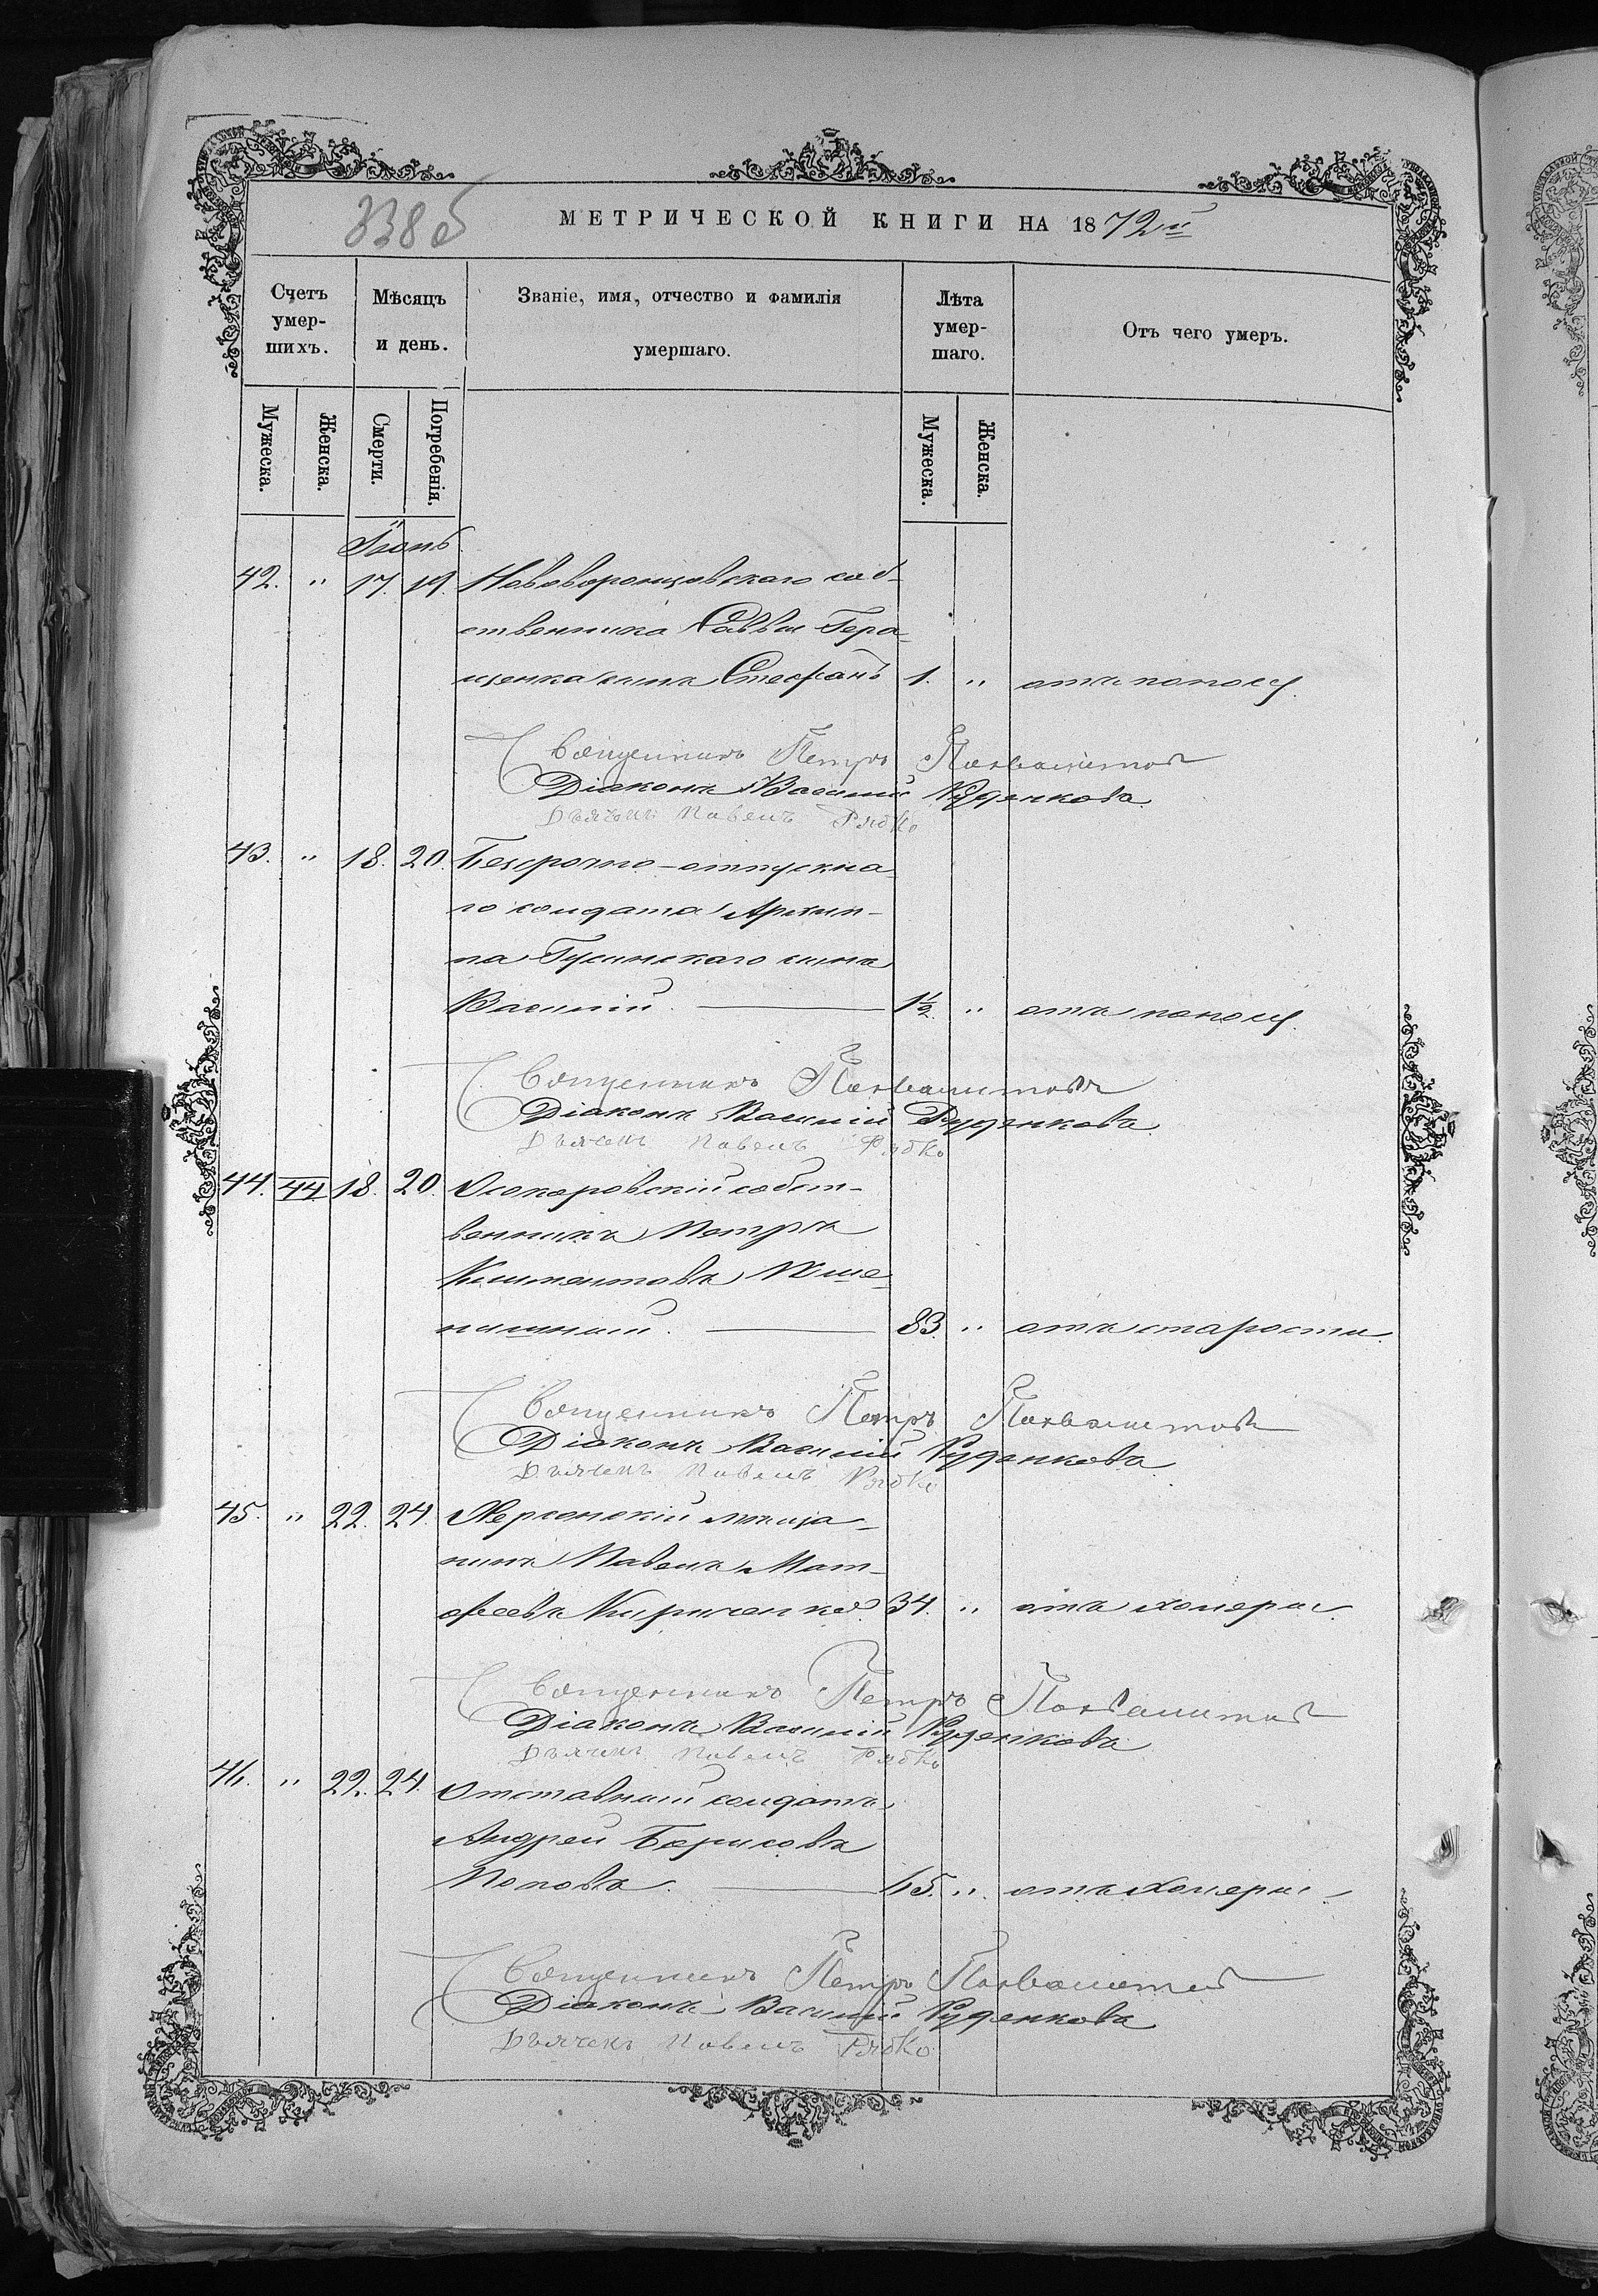 338 об
МЕТРИЧЕСКОЙ КНИГИ НА 1872й
Счетъ умер-шихъ.
Мѣсяцъ и день.
Званіе, имя, отчество и фамилія умершаго.
Лѣта умер-шаго.
Отъ чего умеръ.
Мужеска.
Женска.
Смерти.
Погребенія.
Мужеска.
Женска.
Іюнь
42. " 17. 19. Нововоронцовскаго соб-
ственника Саввы Гера-
щенка сынъ Стефанъ 1. " отъ поносу.
Священникъ Петръ
Діаконъ Василій Руденковъ
Дьячекъ Павелъ Рябко
43. " 18. 20. Безсрочно-отпускна-
го солдата Архип-
па Гусинскаго сынъ
Василій. 1½ " отъ поносу.
Священникъ
Діаконъ Василій Руденковъ
Дьячекъ Павелъ Рябко
44. 44 18. 20. Осокоровскій собст-
венникъ Петръ
Климентовъ Пше-
ничный. 83. " отъ старости.
Священникъ Петръ
Діаконъ Василій Руденковъ
Дьячекъ Павелъ Рябко
45. " 22. 24. Херсонскій мѣща-
нинъ Павелъ Мат-
феевъ Кириченко 34. " отъ холеры.
Священникъ Петръ
Діаконъ Василій Руденковъ
Дьячекъ Павелъ Рябко
46. " 22. 24. Отставный солдатъ
Андрей Борисовъ
Поповъ. 65. " отъ холеры
Священникъ Петръ
Діаконъ Василій Руденковъ
Дьячекъ Павелъ Рябко